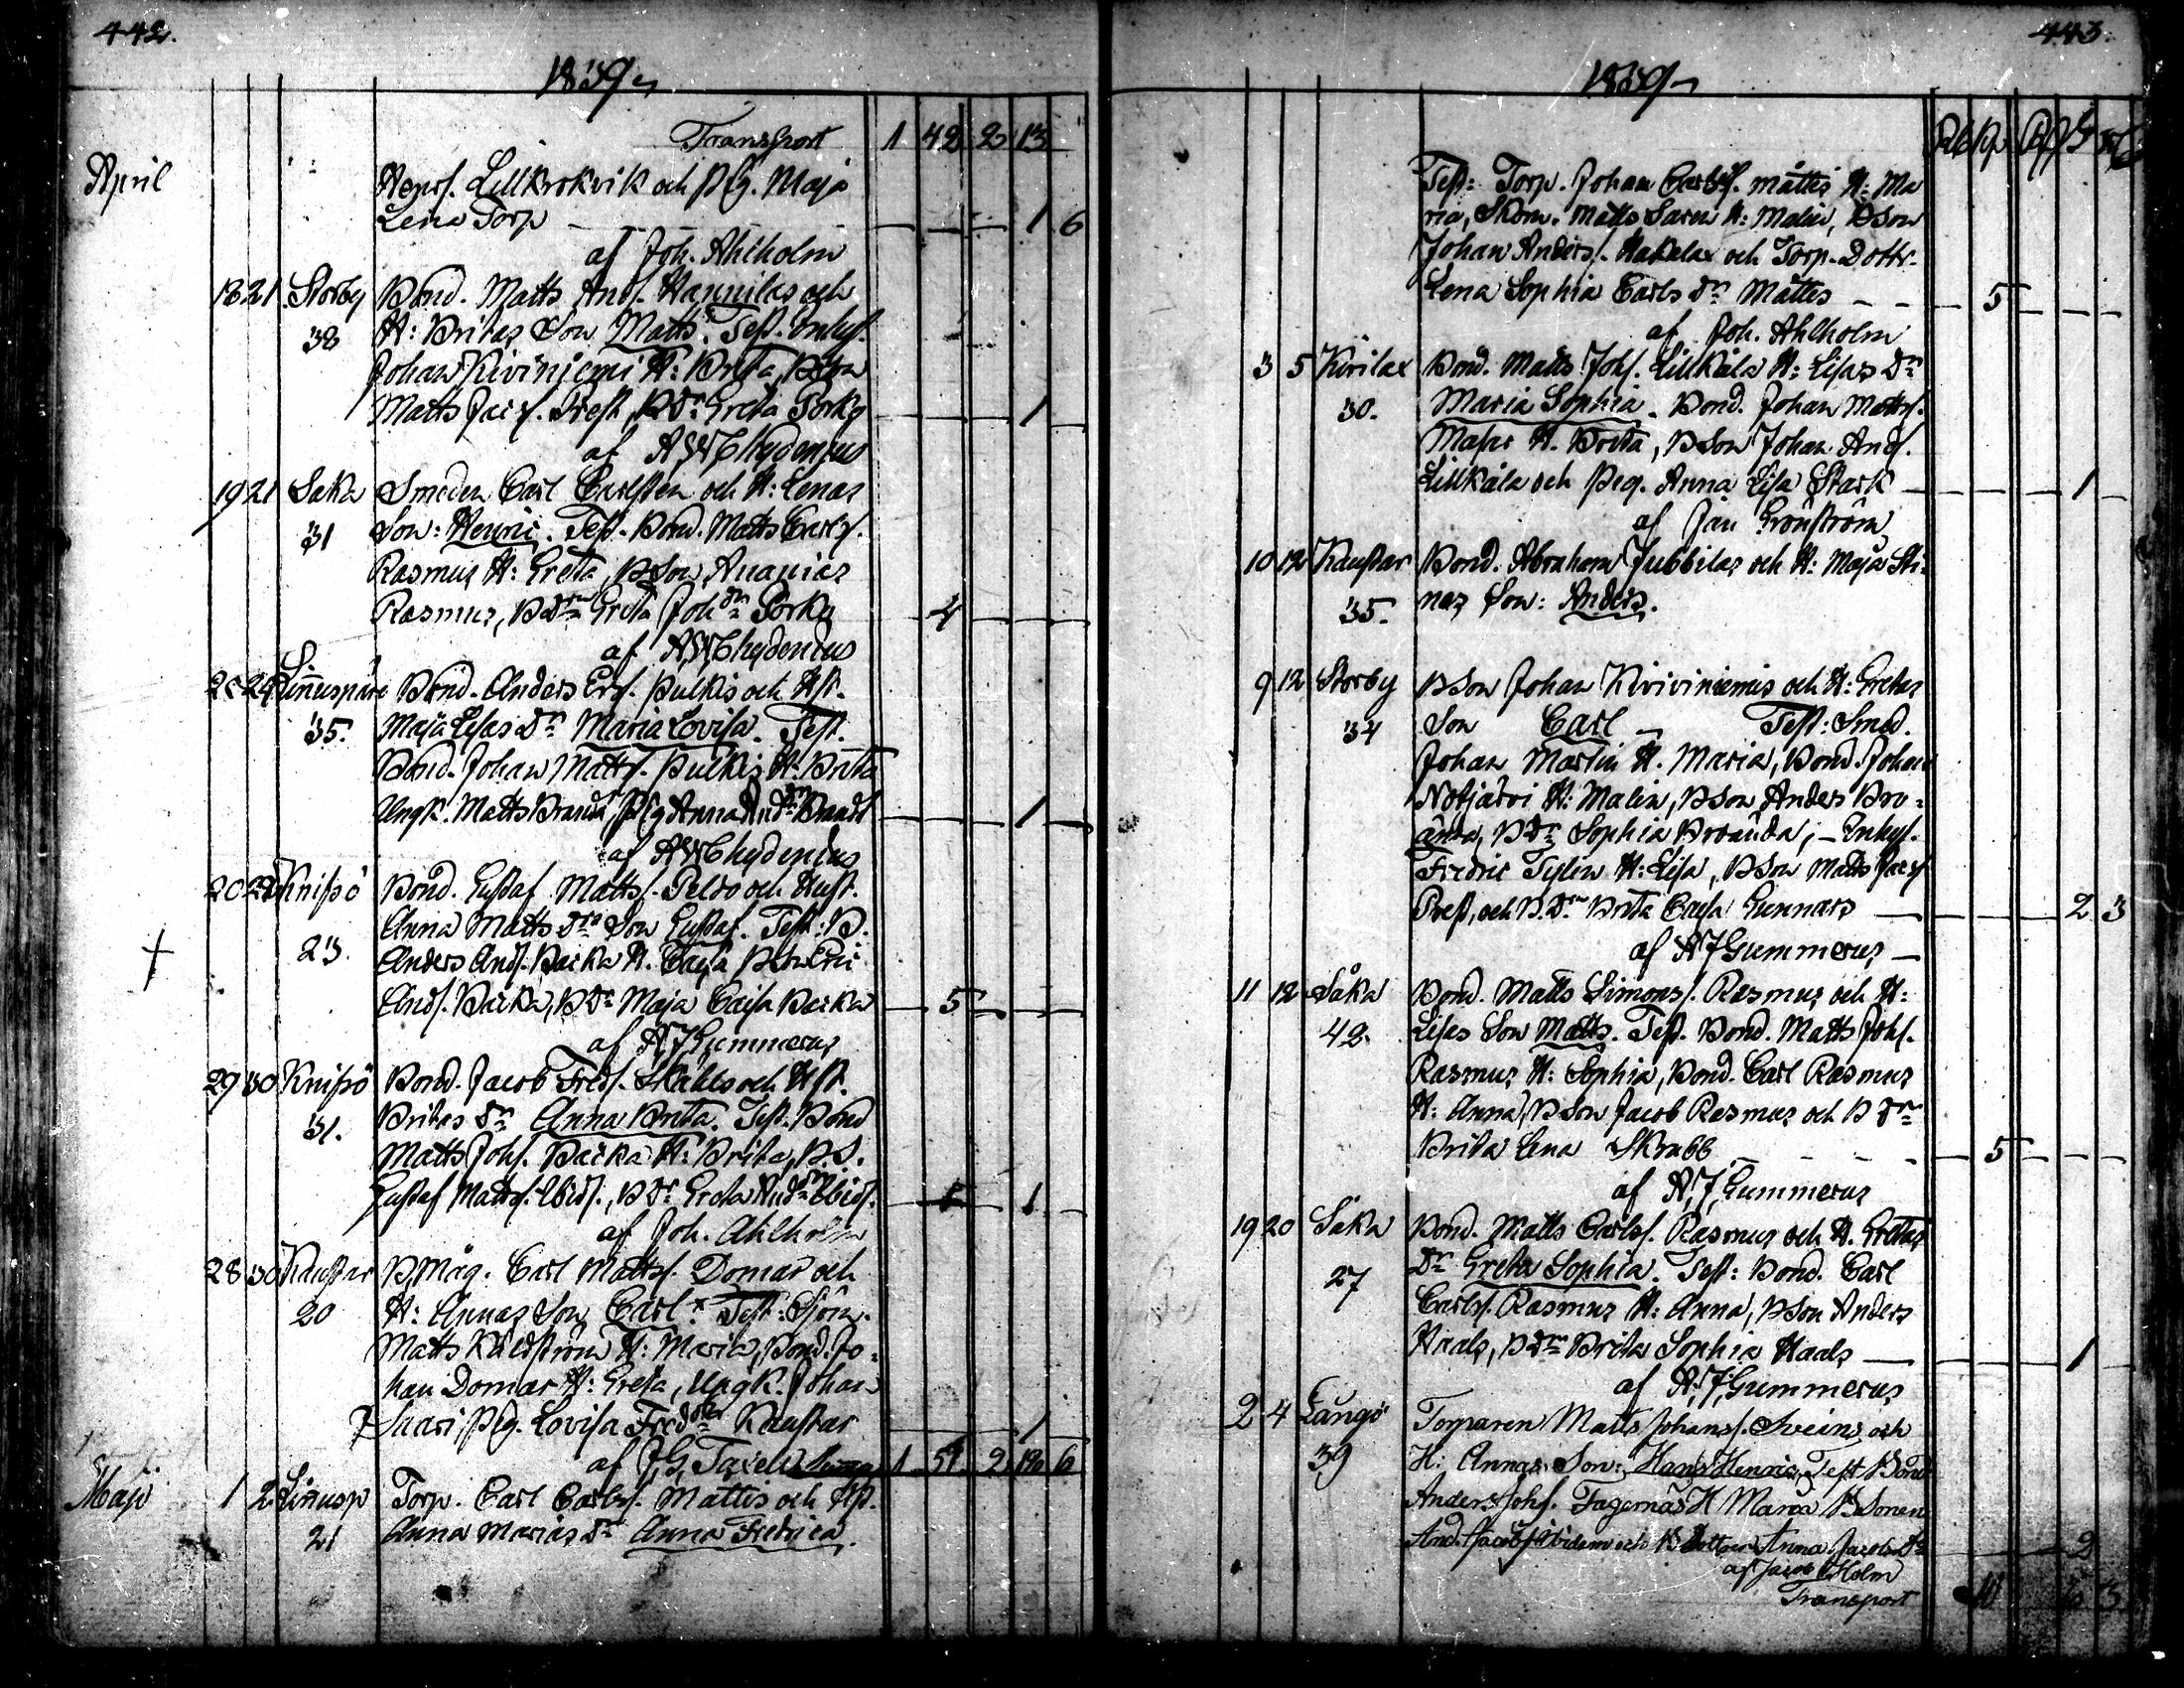 442.
1839
Transport 1 42 2 13
April Hendrs. Lillkrokvik och Pig. Maja
Lena Torp 1 6
af Joh. Ahlholm
18 21 Storby Bond. Matts Ands. Hannilas och
38 H: Britas Son Matts. Test. Inhys.
Johan Kiviniemi H: Brita, BSon
Matts Jacs. Prest, BDr Greta Porko 1
af AWChydenius
19 21 Saka Smeden Carl Carlsten och H: Lenas
31 Son: Henric. Test. Bond. Matts Carls.
Rasmus H: Greta, BSon Ananias
Rasmus, BDr Greta Johdr Porko 4
af AWChydenius
24 Linnuspärä Bond. Anders Ers. Pulkis och Hst.
35. Maja Lisas Dr Maria Lovisa. Test.
Bond. Johan Matts. Pulkis H: Brita
Ungk. Matts Brandt, Pig Anna Anddr Brandt 1
af AWChydenius
20 Knifsö Bond. Gustaf Matts. Peldo och Hust.
23 Anna Matts Drs Son Gustaf. Test: B.
Anders Ands. Backa H. Caisa BSon Eric
Ands. Backa, BDr Maja Caisa Backa 5
af AJGummerus
29 30 Knifsö Bond. Jacob Freds. Skähls och Hst.
31. Britas Dr Anna Brita. Test. Bond
Matts Johs. Backa H: Brita, B.S.
Gustaf Matts. Ibid., BDr Greta Anddr Ibid. 1
af Joh. Ahlholm
28 30 Kaustar BMåg. Carl Matts. Domar och
20 H: Annas Son Carl. Test: Sjöm.
Matts H: Maria, Bond. Jo-
han Domar H: Greta, Ungk. Johan
Saari, Pig. Lovisa Freddr Kaustar 1
af J,G, Taxell Summa 1 2 6
Maji 1 2 Linusp Torp. Carl Carls. Mattes och Hst.
21 Anna Marias Dr Anna Fredrica.
443.
1839
Test: Torp. Johan Carls. Mattes H: Ma
ria, Skom. Matts Saren H: Malin, BSon
Johan Anders. Hakalax och Torp. Dottr.
Lena Sophia Carls Dr Mattes 5
af Joh. Ahlholm
3 5 Kirilax Bond. Matts Johs. Lillkåla H: Lisas Dr
30. Maria Sophia. Bond. Johan Matts.
Masar H. Brita, BSon Johan Ands.
Lillkåla och Pig. Anna Lisa Stark 1
af Jan Grönström
10 12 Kaustar Bond. Abraham Jubbilas och H: Maja Sti-
35. nas Son: Anders.
9 12 Storby BSon Johan Kiviniemis och H: Gretas
34 Son Carl Test: Smed.
Johan Martin H. Maria, Bond. Johan
Notjärvi H: Malin, BSon Anders Bro-
ända, BDr Sophia Broända; Inhys.
Fredric Tylin H: Lisa, BSon Matts Jacs
Prest, och B.Dr Brita Caisa Gunnars 2 3
af AJGummerus
11 12 Såka Bond. Matts Simons. Rasmus och H:
42. Lisas Son Matts. Test. Bond. Matts Johs.
Rasmus H: Sophia, Bond. Carl Rasmus
H: Anna, BSon Jacob Rasmus och B Dr
Brita Lena Skrabb 5
af A,J,Gummerus
19 20 Såka Bond. Matts Carls. Rasmus och H. Gretas
27 Dr Greta Sophia. Test: Bond. Carl
Carls. Rasmus H: Anna, BSon Anders
Haals, BDr Brita Sophia Haals 1
af A,J,Gummerus
2 4 Långö Torparen Matts Johans. Sveins och
39 H: Annas Son: Hans Henric, Test Bond
Anders Johs. Fagernäs H Maria B Sonen
And. Jacobs Ibidem och B Dotter Anna Jacobs Dr 2
af Jacob Holm
Transport 3